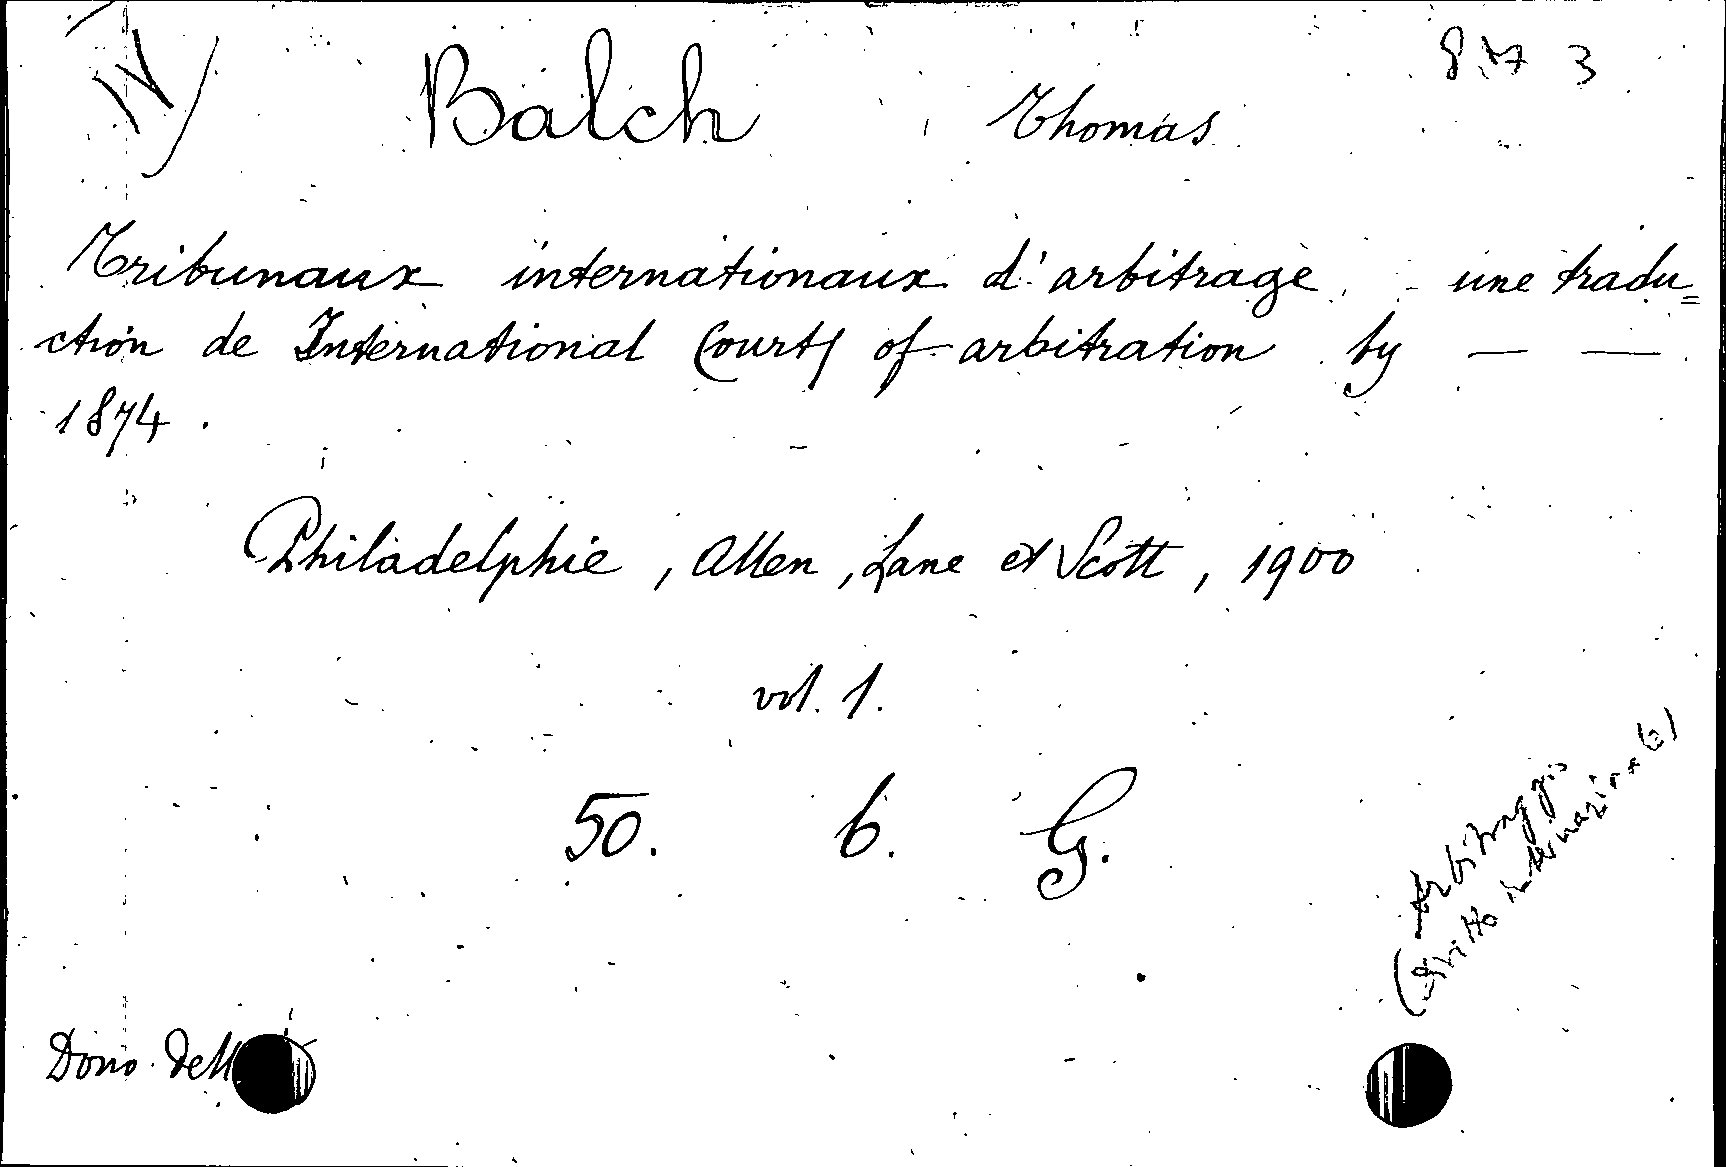 IV
Balch Thomas
Tribunaux internationaux d'arbitrage une tradu=
ction de International Courts of arbitration by — —
1874.
Philadelphie, Allen, Lane et Scott, 1900
vol. 1.
50. 6. G.
Arbitraggio
(diritto internazionale)
Dono dell